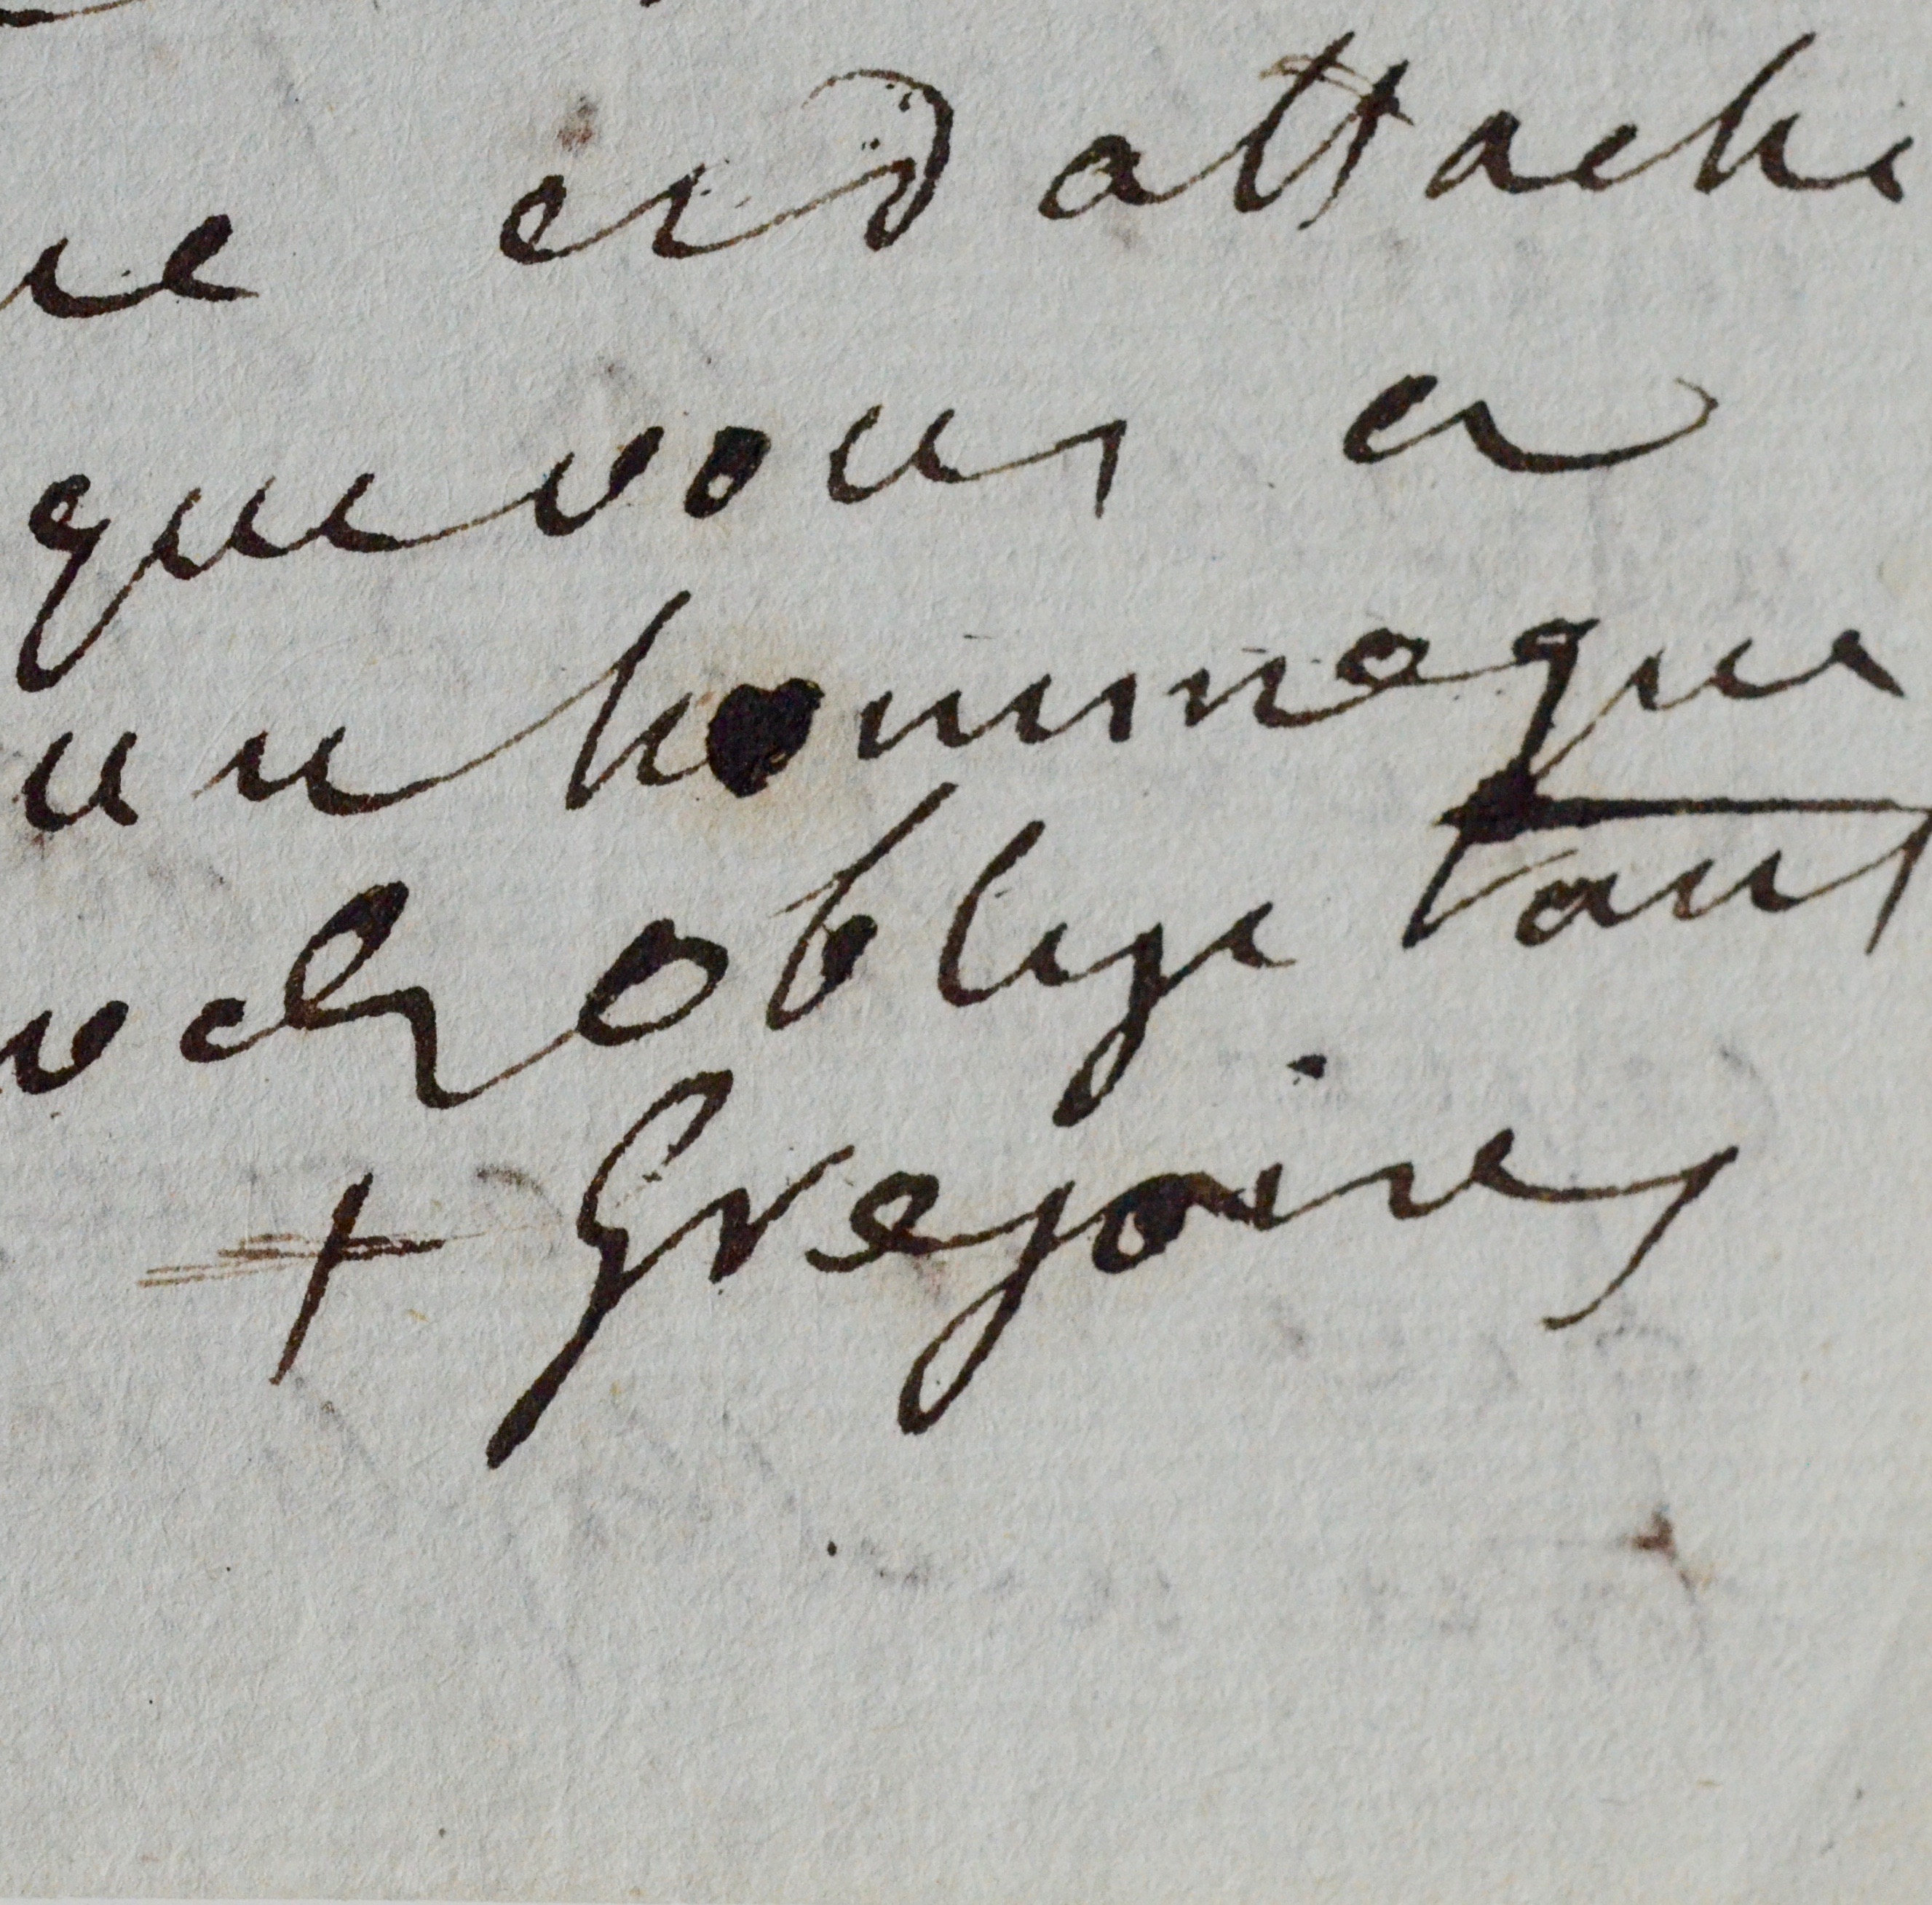 re end attache
que vous a
un homme que
vélz oblige tant
+ Gregoire